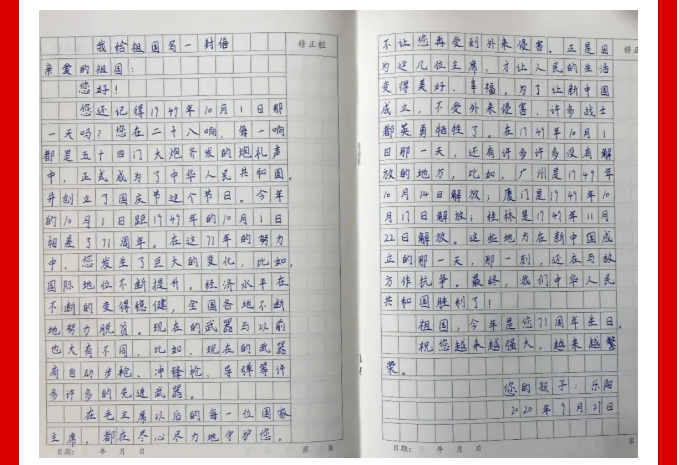 我给祖国写一封信
修正栏
亲爱的祖国：
您好！
您还记得1949年10月1日那
一天吗？您在二十八响，每一响
都是五十四门大炮齐发的炮礼声
中，正式成为了中华人民共和国，
并创立了国庆节这个节日。今年
的10月1日距1949年的10月1日
相差了71周年。在这71年的努力
中，您发生了巨大的变化，比如，
国际地位不断提升，经济水平在
不断的变得稳健，全国各地不断
地努力脱贫。现在的武器与以前
也大有不同，比如，现在的武器
有自动步枪、冲锋枪、导弹等许
多许多的先进武器。
在毛主席以后的每一位国家
主席，都在尽心尽力地守护您，
日期： 年 月 日
第 页
不让您再受到外来侵害。正是因
修正
为这几位主席，才让人民的生活
变得美好、幸福。为了让新中国
成立，不受外来侵害，许多战士
都英勇牺牲了。在1949年10月1
日那一天，还有许多许多没有解
放的地方，比如，广州是1949年
10月14日解放；厦门是1949年10
月17日解放；桂林是1949年11月
22日解放。这些地方在新中国成
立的那一天，那一刻，还在与敌
方作抗争。最终，我们中华人民
共和国胜利了！
祖国，今年是您71周年生日。
祝您越来越强大，越来越繁
荣。
您的孩子：乐陶
2020年9月21日
日期： 年 月 日
第